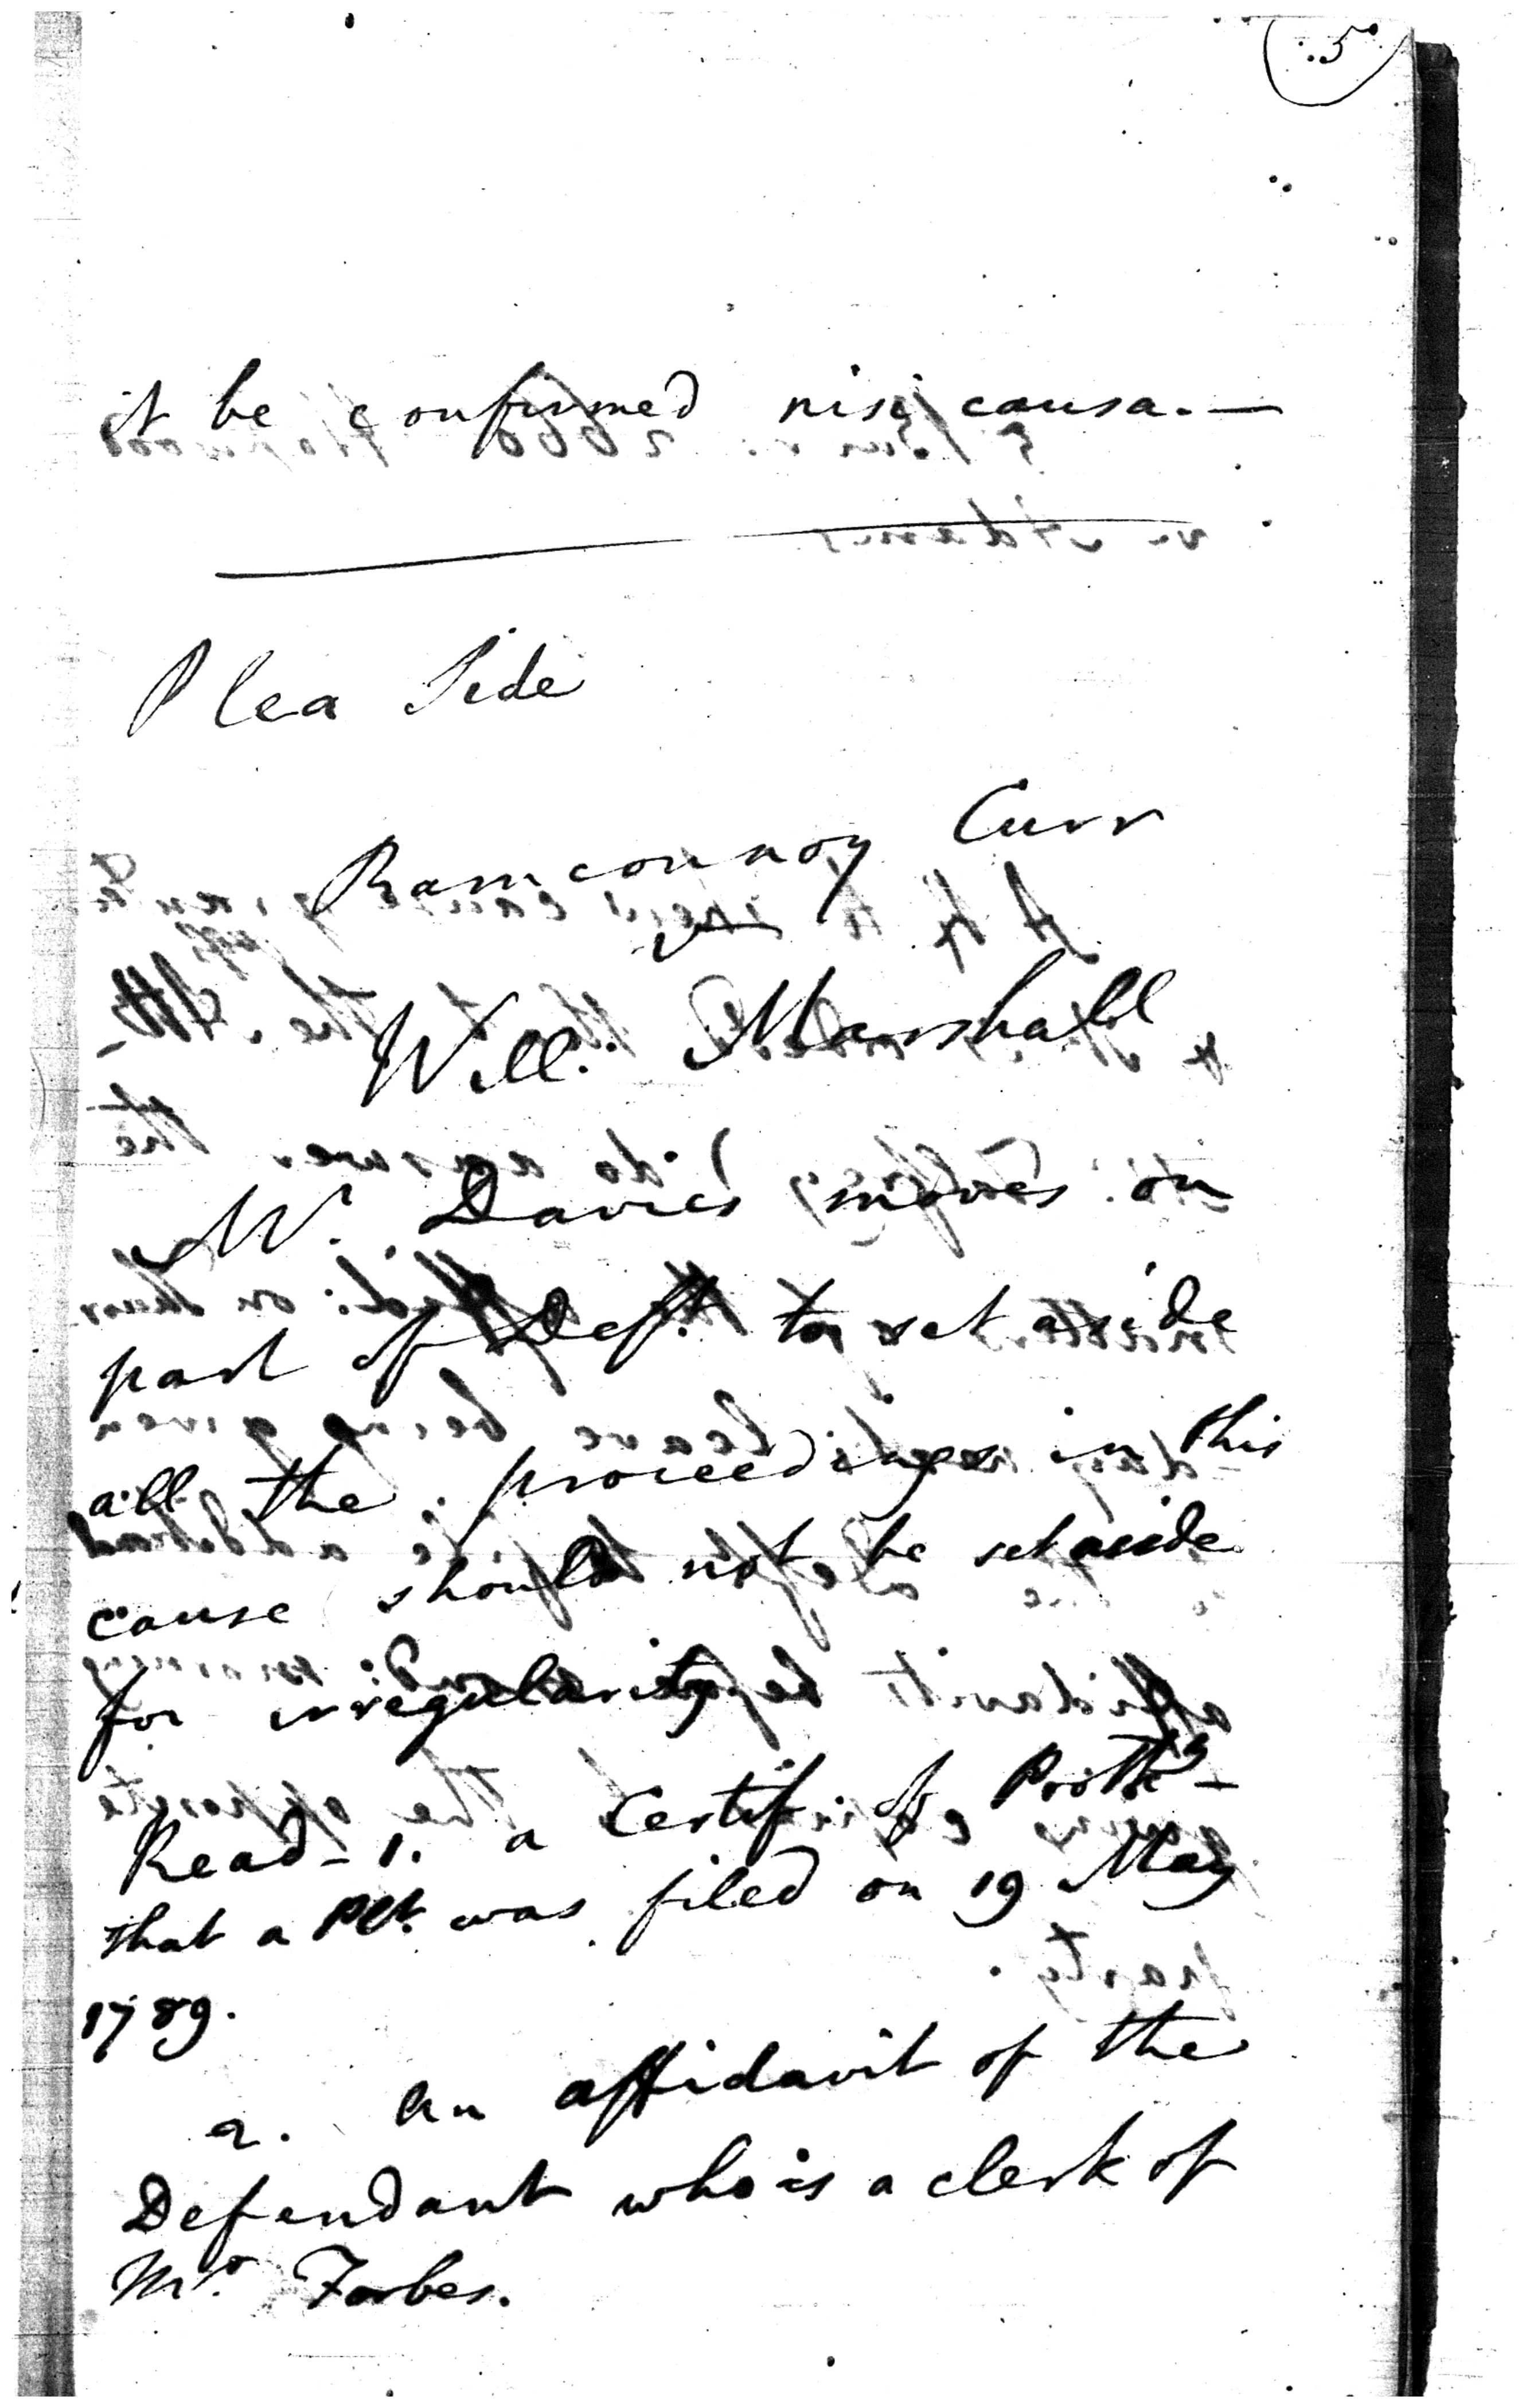 5
it be confirmed nisi causa.—
Plea Side
Ramconnoy Curr
v
Will. Marshall
Mr. Davies moves on
part of Deft. to set aside
all the proceedings in this
cause should not be set aside
for irregularity.
Read - 1. a Certif. of Prothy
that a Plt. was filed on 19 May
1789.
2. An affidavit of the
Defendant who is a clerk of
Mr. Forbes.